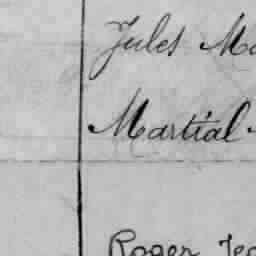 Jules Ma
Martial
Roger Jea